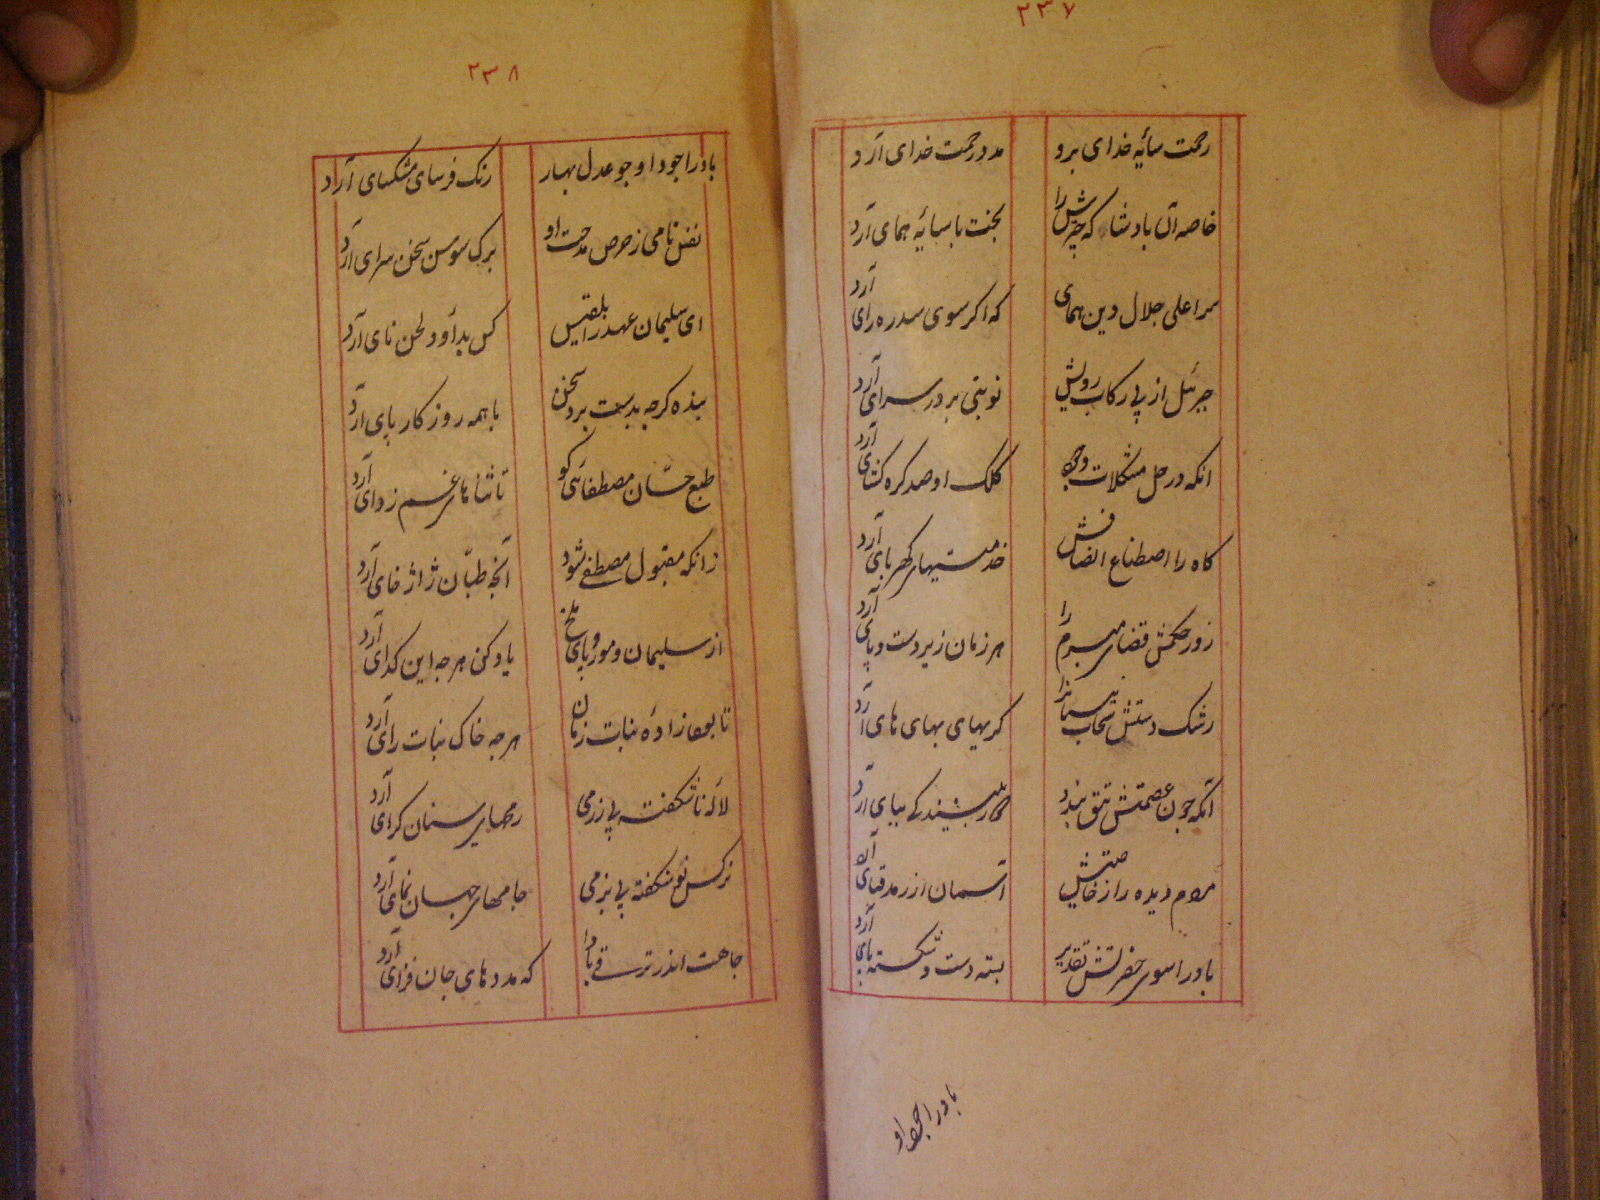 ۲۳۷
رحمت سایهٔ خدای برو مدد رحمت خدای آرد
خاصه آن بادشاه که چترش را بخت با سایهٔ همای آرد
سر اعلی جلال دین همای که اکر سوی سدره رای آرد
جبرئیل از پی رکاب رویش نوبتی بر در سرای آرد
انکه در حل مشکلات وجود کلک او صد کره کشای آرد
کاه را اصطناع انصافش خدمتیهای کهربای آرد
زور حکمش قضای مبرم را هر زمان زیر دست و پای آرد
رشک دستش سحاب نیسانرا کریهای بهای های آرد
آنکه چون عصمتش تتق بندد
مردم دیده را ز خاصیتش آسمان از رمد قبای آرد
باد را سوی حضرتش تقدیر بسته دست و شکسته پای آرد
باد را جود او
۲۳۸
باد را جود او جو عدل بهار رنک فرسای مشکسای آراد
نفس نامی ز حرص مدحت او برک سوسن سخن سرای آرد
ای سلیمان عهد را بلقیس کس بداود لحن نای آرد
بنده کرجه بدست برد سخن با همه روزکار پای آرد
طبع حسّان مصطفائی کو تا ثناهای غم زدای آرد
زانکه مقبول مصطفی نشود آنچه طیّان ژاژخای آرد
از سلیمان و مور و پای ملخ یاد کن هرجه این کدای آرد
تا بود زادهٔ نبات زمان هرجه خاک نبات رای آرد
لالهٔ ناشکفته بی رزمی رمحهای سنان کرای آرد
نرکس نو شکفته بی بزمی جامهای جهان نمای آرد
جاهت اندر ترقی بادا که مددهای جان فزای آرد